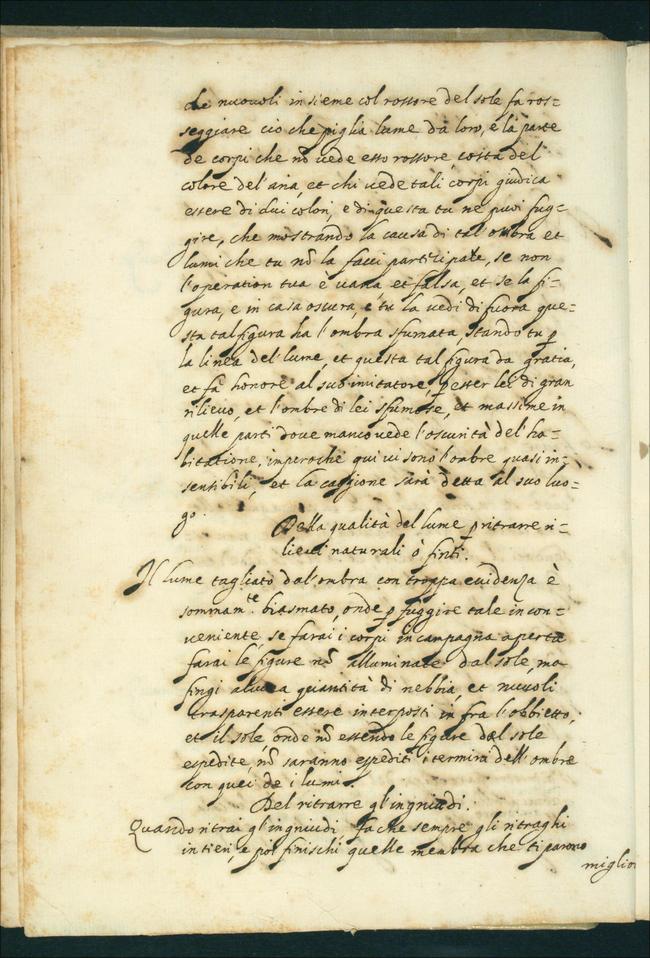 che nuvoli insieme col rossore del sole fa ros=
seggiare ciò che piglia lume da loro, e la parte
de corpi che nō vede esso rossore, resta del
colore del'aria, et chi vede tali corpi giudica
essere di dui colori, e di questa tu ne puoi fug=
gire, che mostrando la causa di tal'ombra et
lumi che tu nō la facci participare, se non
l'operation tua è vana et falsa, et se la fi=
gura, e in casa oscura, e tu la vedi di fuora que=
sta tal figura ha l'ombra sfumata, stando tu ꝑ
la linea del'lume, et questa tal figura da gratia,
et fà honore al suo imitatore, ꝑ esser lei di gran
rilievo, et l'ombre di lei sfumose, et massime in
quelle parti dove manco vede l'oscurità del'ha=
bitatione, imperoche quivi sono l'ombre quasi in=
sensibili, et la caggione sarà detta al suo luo=
go.
Della qualità del lume ꝑ ritrarre ri=
lievi naturali ò finti.
Il lume tagliato dal'ombra con troppa evidenza è
sommamte. biasmato, onde ꝑ fuggire tale incon=
veniente, se farai i corpi in campagna aperta
farai le figure nō alluminate dal sole, ma
fingi alcuna quantità di nebbia, et nuvoli
trasparenti essere interposti in fra l'obbietto,
et il sole, onde nō essendo le figure dal sole
espedite, nō saranno espediti i termini dell'ombre
con quei de i lumi.
Del ritrarre gl'ingniudi.
Quando ritrai gl'ingniudi fa che sempre gli ritraghi
intieri, e poi finischi quelle membra che ti parono
miglio